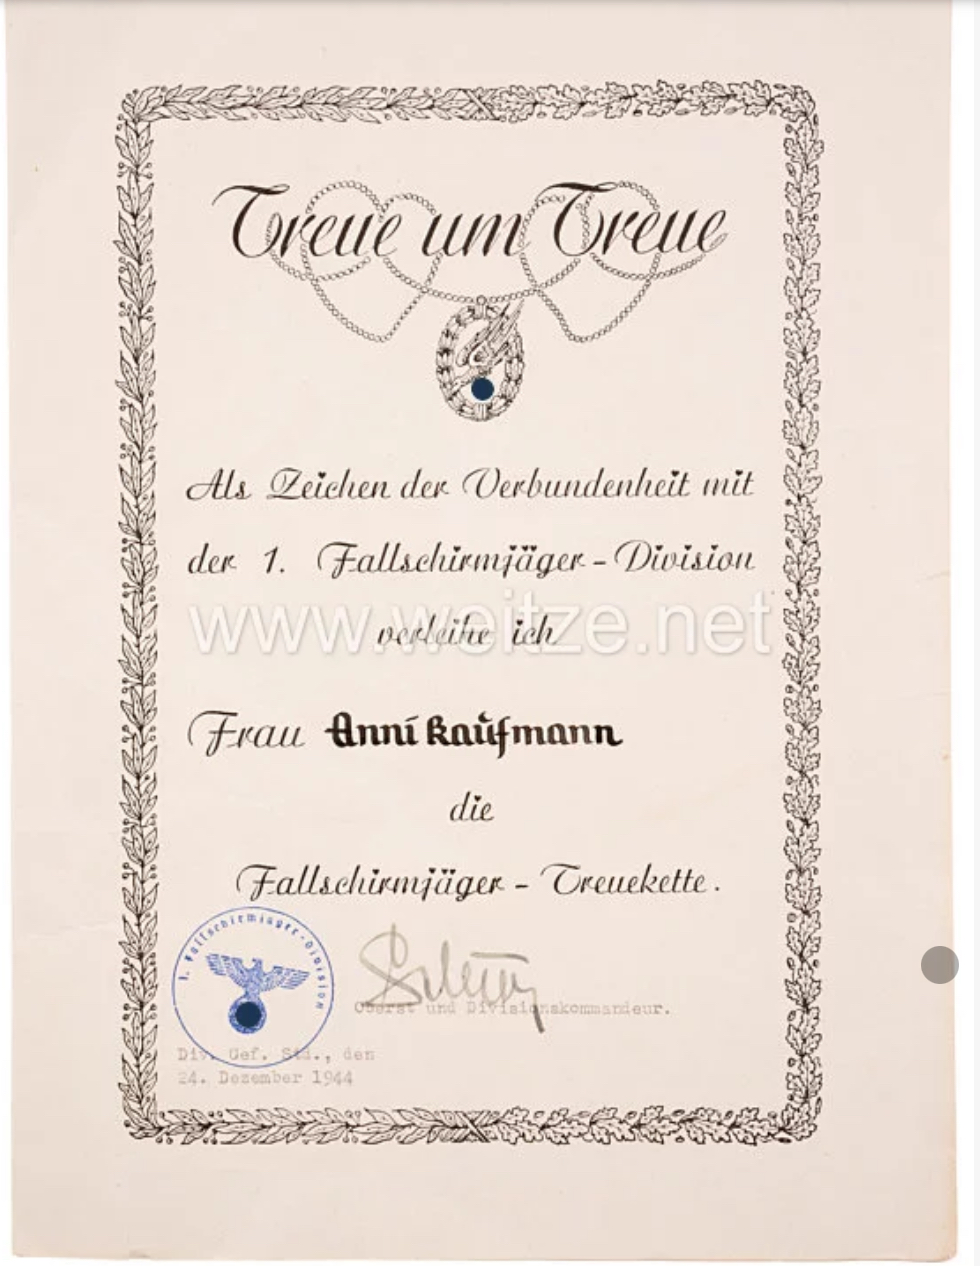 Treue um Treue
Als Zeichen der Verbundenheit mit
der 1. Fallschirmjäger-Division
www.weitze.net
verleihe ich
Frau Anni Kaufmann
die
Fallschirmjäger - Treuekette.
1. Fallschirmjäger-Division
Oberst und Divisionskommandeur.
Div. Gef. Std., den
24. Dezember 1944